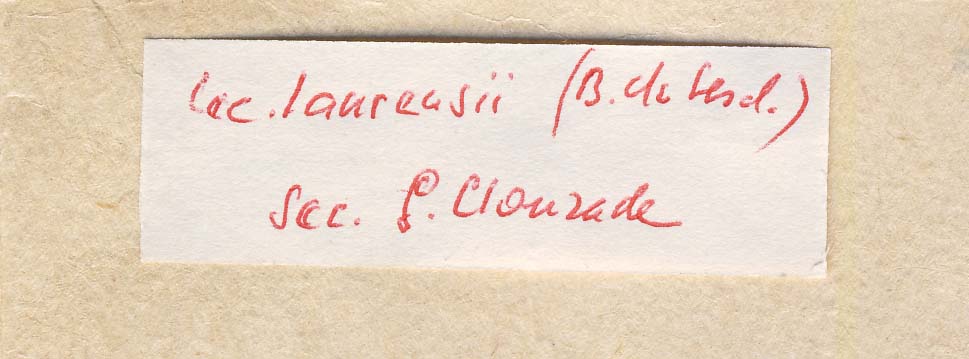 Lec. laurensii (B. de Lesd.)
Sec. G. Clouzade